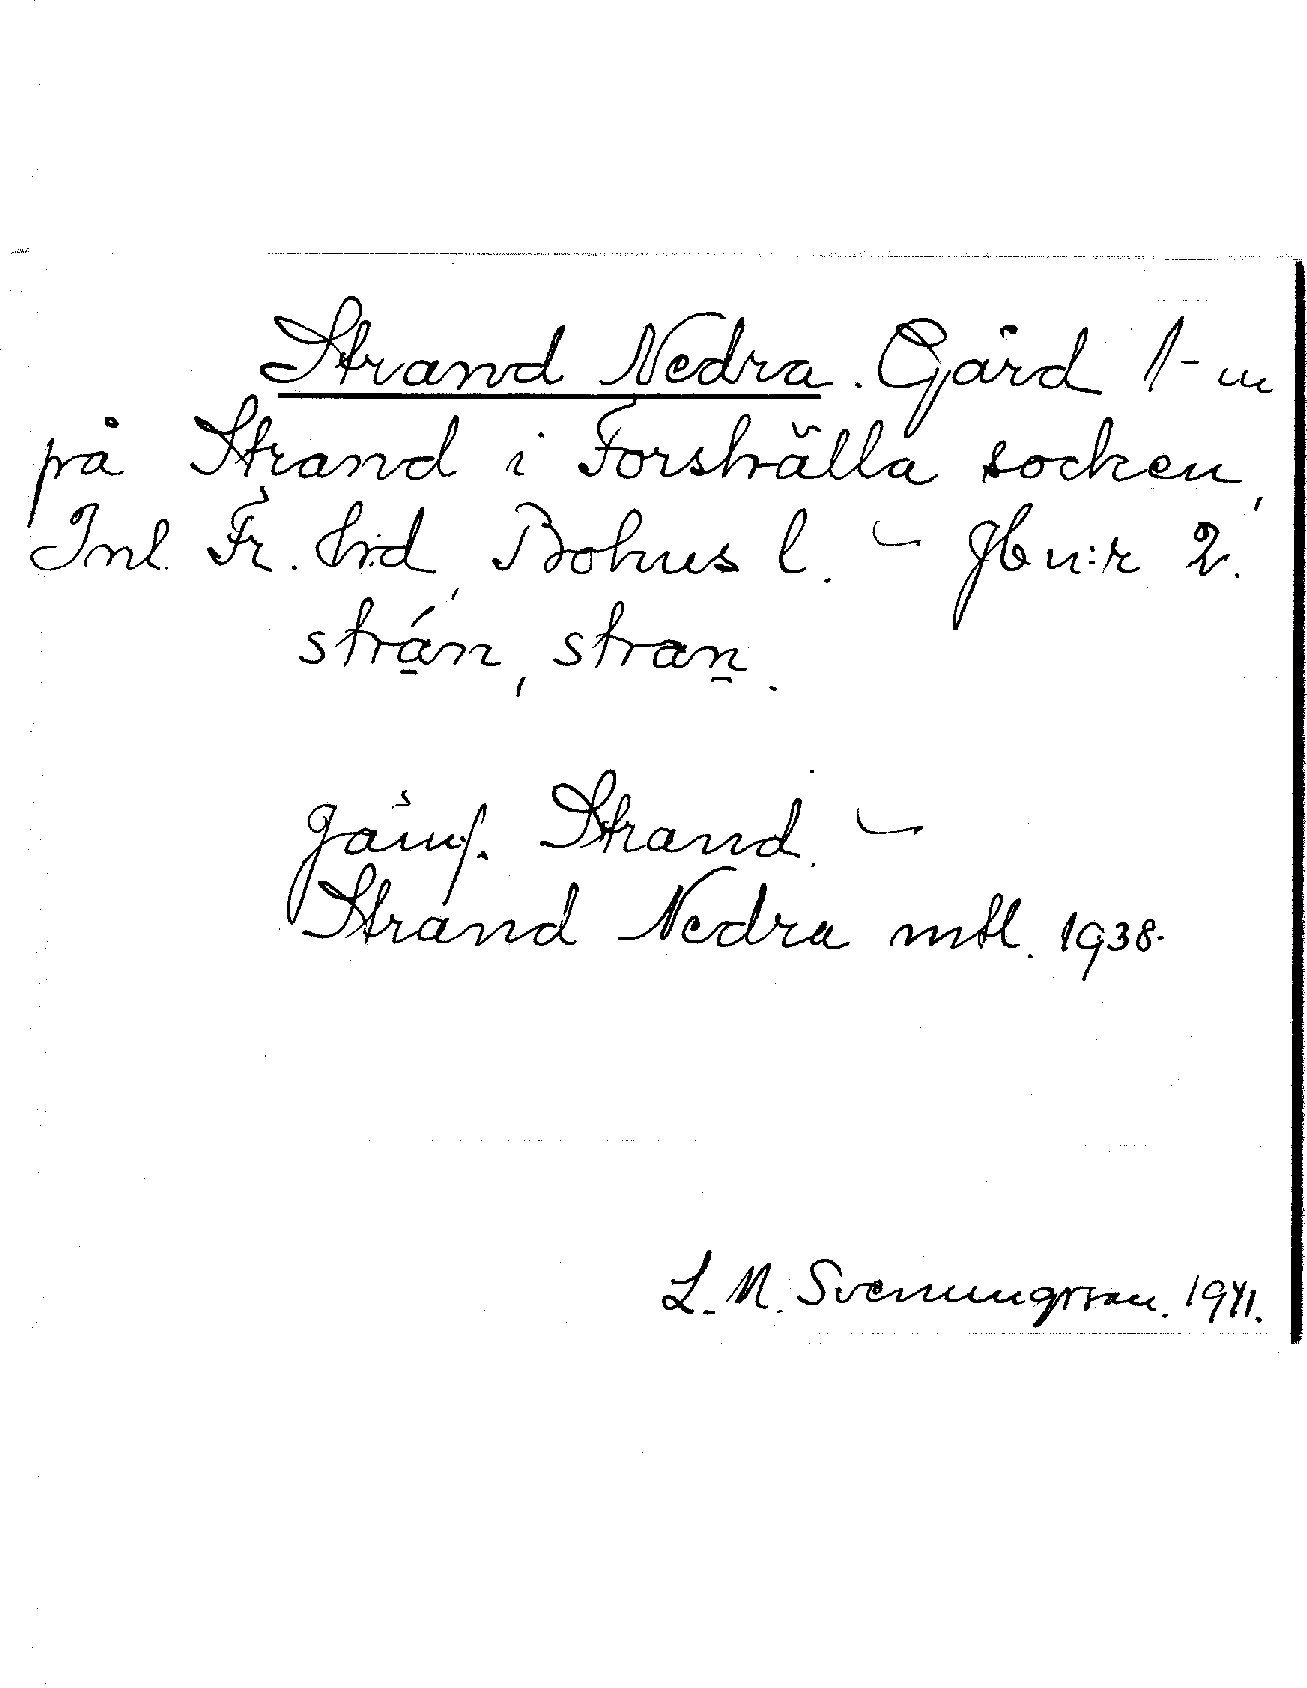 Strand Nedra. Gård 1-m
på Strand i Forshälla socken,
Inl. Fr. hd, Bohus l. – Jb n:r 2.
strán, stran.
Jämf. Strand. –
Strand Nedra mtl. 1938.
L. M. Svenungsson. 1941.